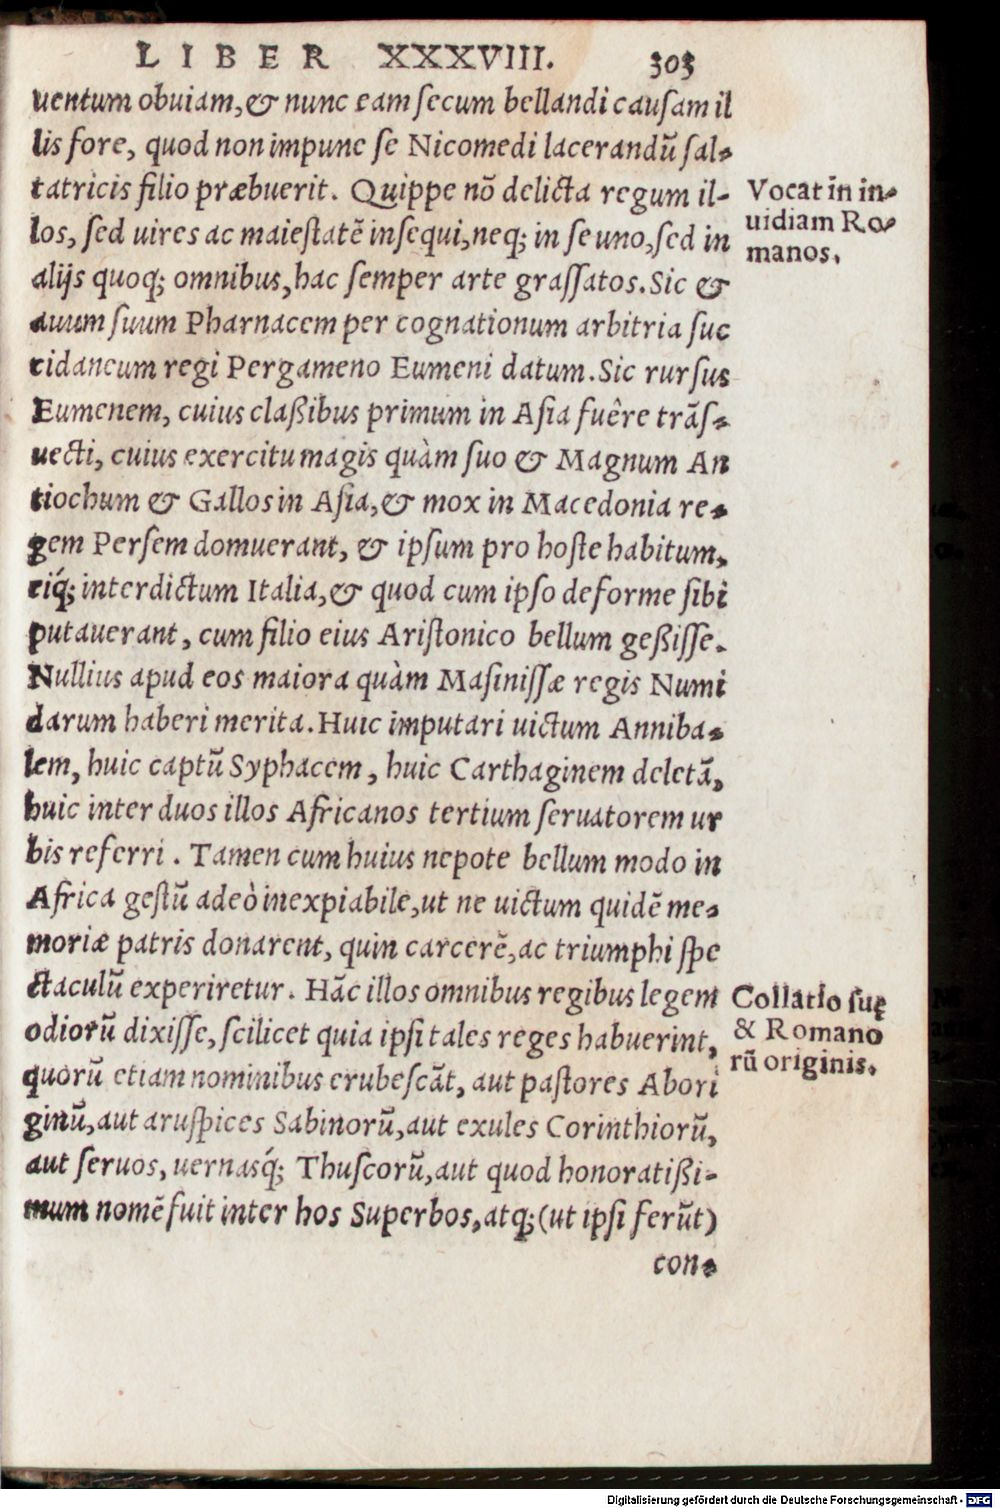 LIBER XXXVIII. 303
uentum obuiam, & nunc eam secum bellandi causam il
lis fore, quod non impune se Nicomedi lacerandū sal-
tatricis filio præbuerit. Quippe nō delicta regum il-
los, sed uires ac maiestatē insequi, neq; in se uno, sed in
alijs quoq; omnibus, hac semper arte grassatos. Sic &
auum suum Pharnacem per cognationum arbitria suc
cidaneum regi Pergameno Eumeni datum. Sic rursus
Eumenem, cuius claßibus primum in Asia fuêre trās-
uecti, cuius exercitu magis quàm suo & Magnum An
tiochum & Gallos in Asia, & mox in Macedonia re-
gem Persem domuerant, & ipsum pro hoste habitum,
eiq́; interdictum Italia, & quod cum ipso deforme sibi
putauerant, cum filio eius Aristonico bellum geßisse.
Nullius apud eos maiora quàm Masinissæ regis Numi
darum haberi merita. Huic imputari uictum Anniba-
lem, huic captū Syphacem, huic Carthaginem deletā,
huic inter duos illos Africanos tertium seruatorem ur
bis referri. Tamen cum huius nepote bellum modo in
Africa gestū adeò inexpiabile, ut ne uictum quidē me-
moriæ patris donarent, quin carcerē, ac triumphi spe
ctaculū experiretur. Hāc illos omnibus regibus legem
odiorū dixisse, scilicet quia ipsi tales reges habuerint,
quorū etiam nominibus erubescāt, aut pastores Abori
ginū, aut aruspices Sabinorū, aut exules Corinthiorū,
aut seruos, uernasq́; Thuscorū, aut quod honoratißi-
mum nomē fuit inter hos Superbos, atq; (ut ipsi ferūt)
con-
Vocat īn in-
uidiam Ro-
manos.
Collatio suę
& Romano
rū originis.
Digitalisierung gefördert durch die Deutsche Forschungsgemeinschaft - DFG